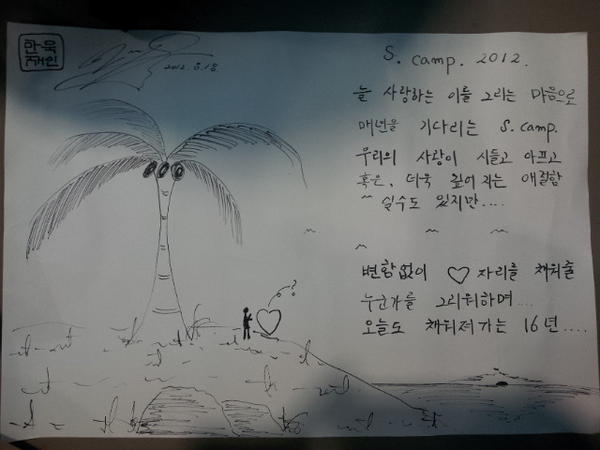 2012. 8. 18
S. camp. 2012.
늘 사랑하는 이들 그리는 마음으로
매년을 기다리는 S. camp.
우리의 사랑이 시들고 아프고
혹은, 더욱 깊어 지는 애절함
일수도 있지만....
변함없이 ♡ 자리를 채워줄
누군가를 그리워하며....
오늘도 채워져가는 16년....